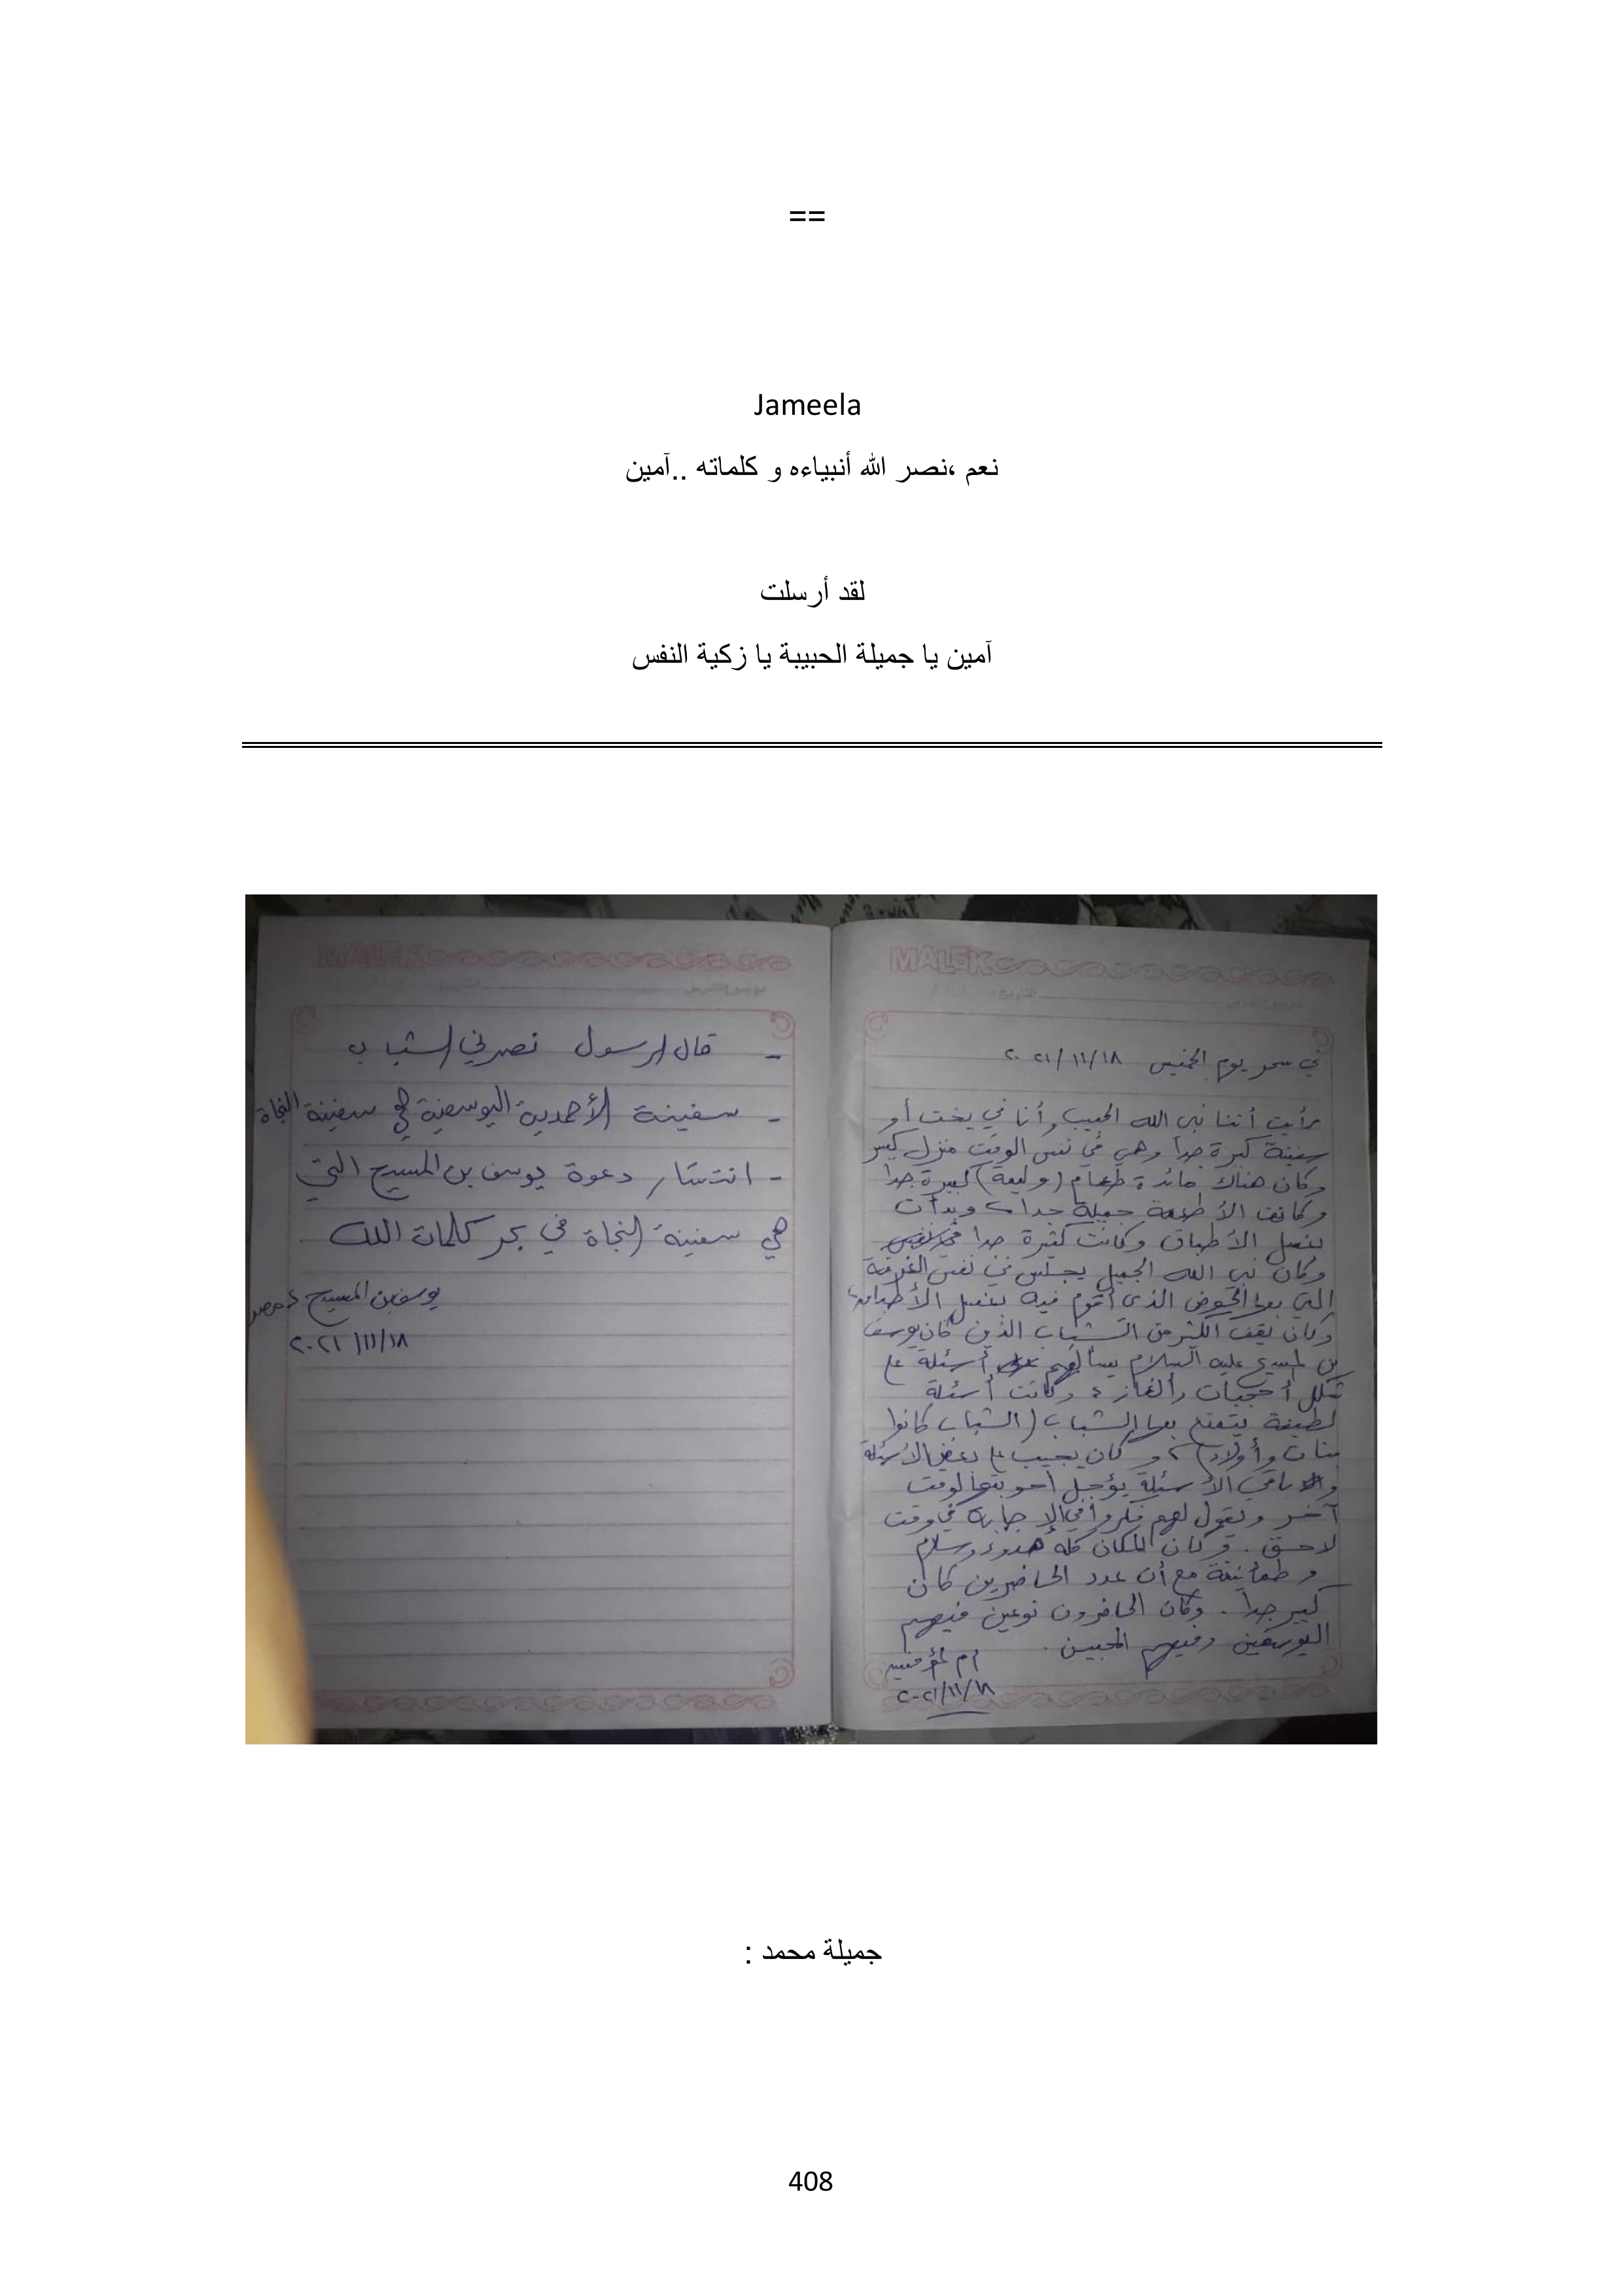 ==
Jameela
نعم ،نصر الله أنبياءه و كلماته ..آمين
لقد أرسلت
آمين يا جميلة الحبيبة يا زكية النفس
MALEK
في سحر يوم الخميس ٢٠٢١/١١/١٨
رأيت أننا نبى الله الحبيب وأنا في يخت أو
سفينة كبيرة جداً وهي في نفس الوقت منزل كبير
وكان هناك مائدة طعام (وليمة) كبيرة جداً
وكانت الأطعمة جميلة جدا، وبدأت
بغسل الأطباق وكانت كثيرة جدا
وكان نبى الله الجميل يجلس في نفس الغرفة
التي بها الحوض الذى أقوم فيه بغسل الأطباق،
وكان يقف الكثير من الشباب الذين كان يوسف
بن المسيح عليه السلام يسألهم أسئلة على
شكل أحجيات وألغاز، وكانت أسئلة
لطيفة يتمتع بها الشباب (الشباب كانوا
بنات وأولاد)، و كان يجيب على بعض الأسئلة
و باقي الأسئلة يؤجل أجوبتها لوقت
آخر ويقول لهم فكروا في الإجابة في وقت
لاحق. وكان المكان كله هدوء وسلام
و طمأنينة مع أن عدد الحاضرين كان
كبير جداً. وكان الحاضرون نوعين فيهم
اليوسفيين وفيهم المحبين.
أم المؤمنين
٢٠٢١/١١/١٨
MALEK
- قال الرسول نصرني الشباب
- سفينة الأحمدية اليوسفية هي سفينة النجاة
- انتشار دعوة يوسف بن المسيح التي
هي سفينة النجاة في بحر كلمات الله
يوسف بن المسيح، مصر
٢٠٢١/١١/١٨
جميلة محمد :
408